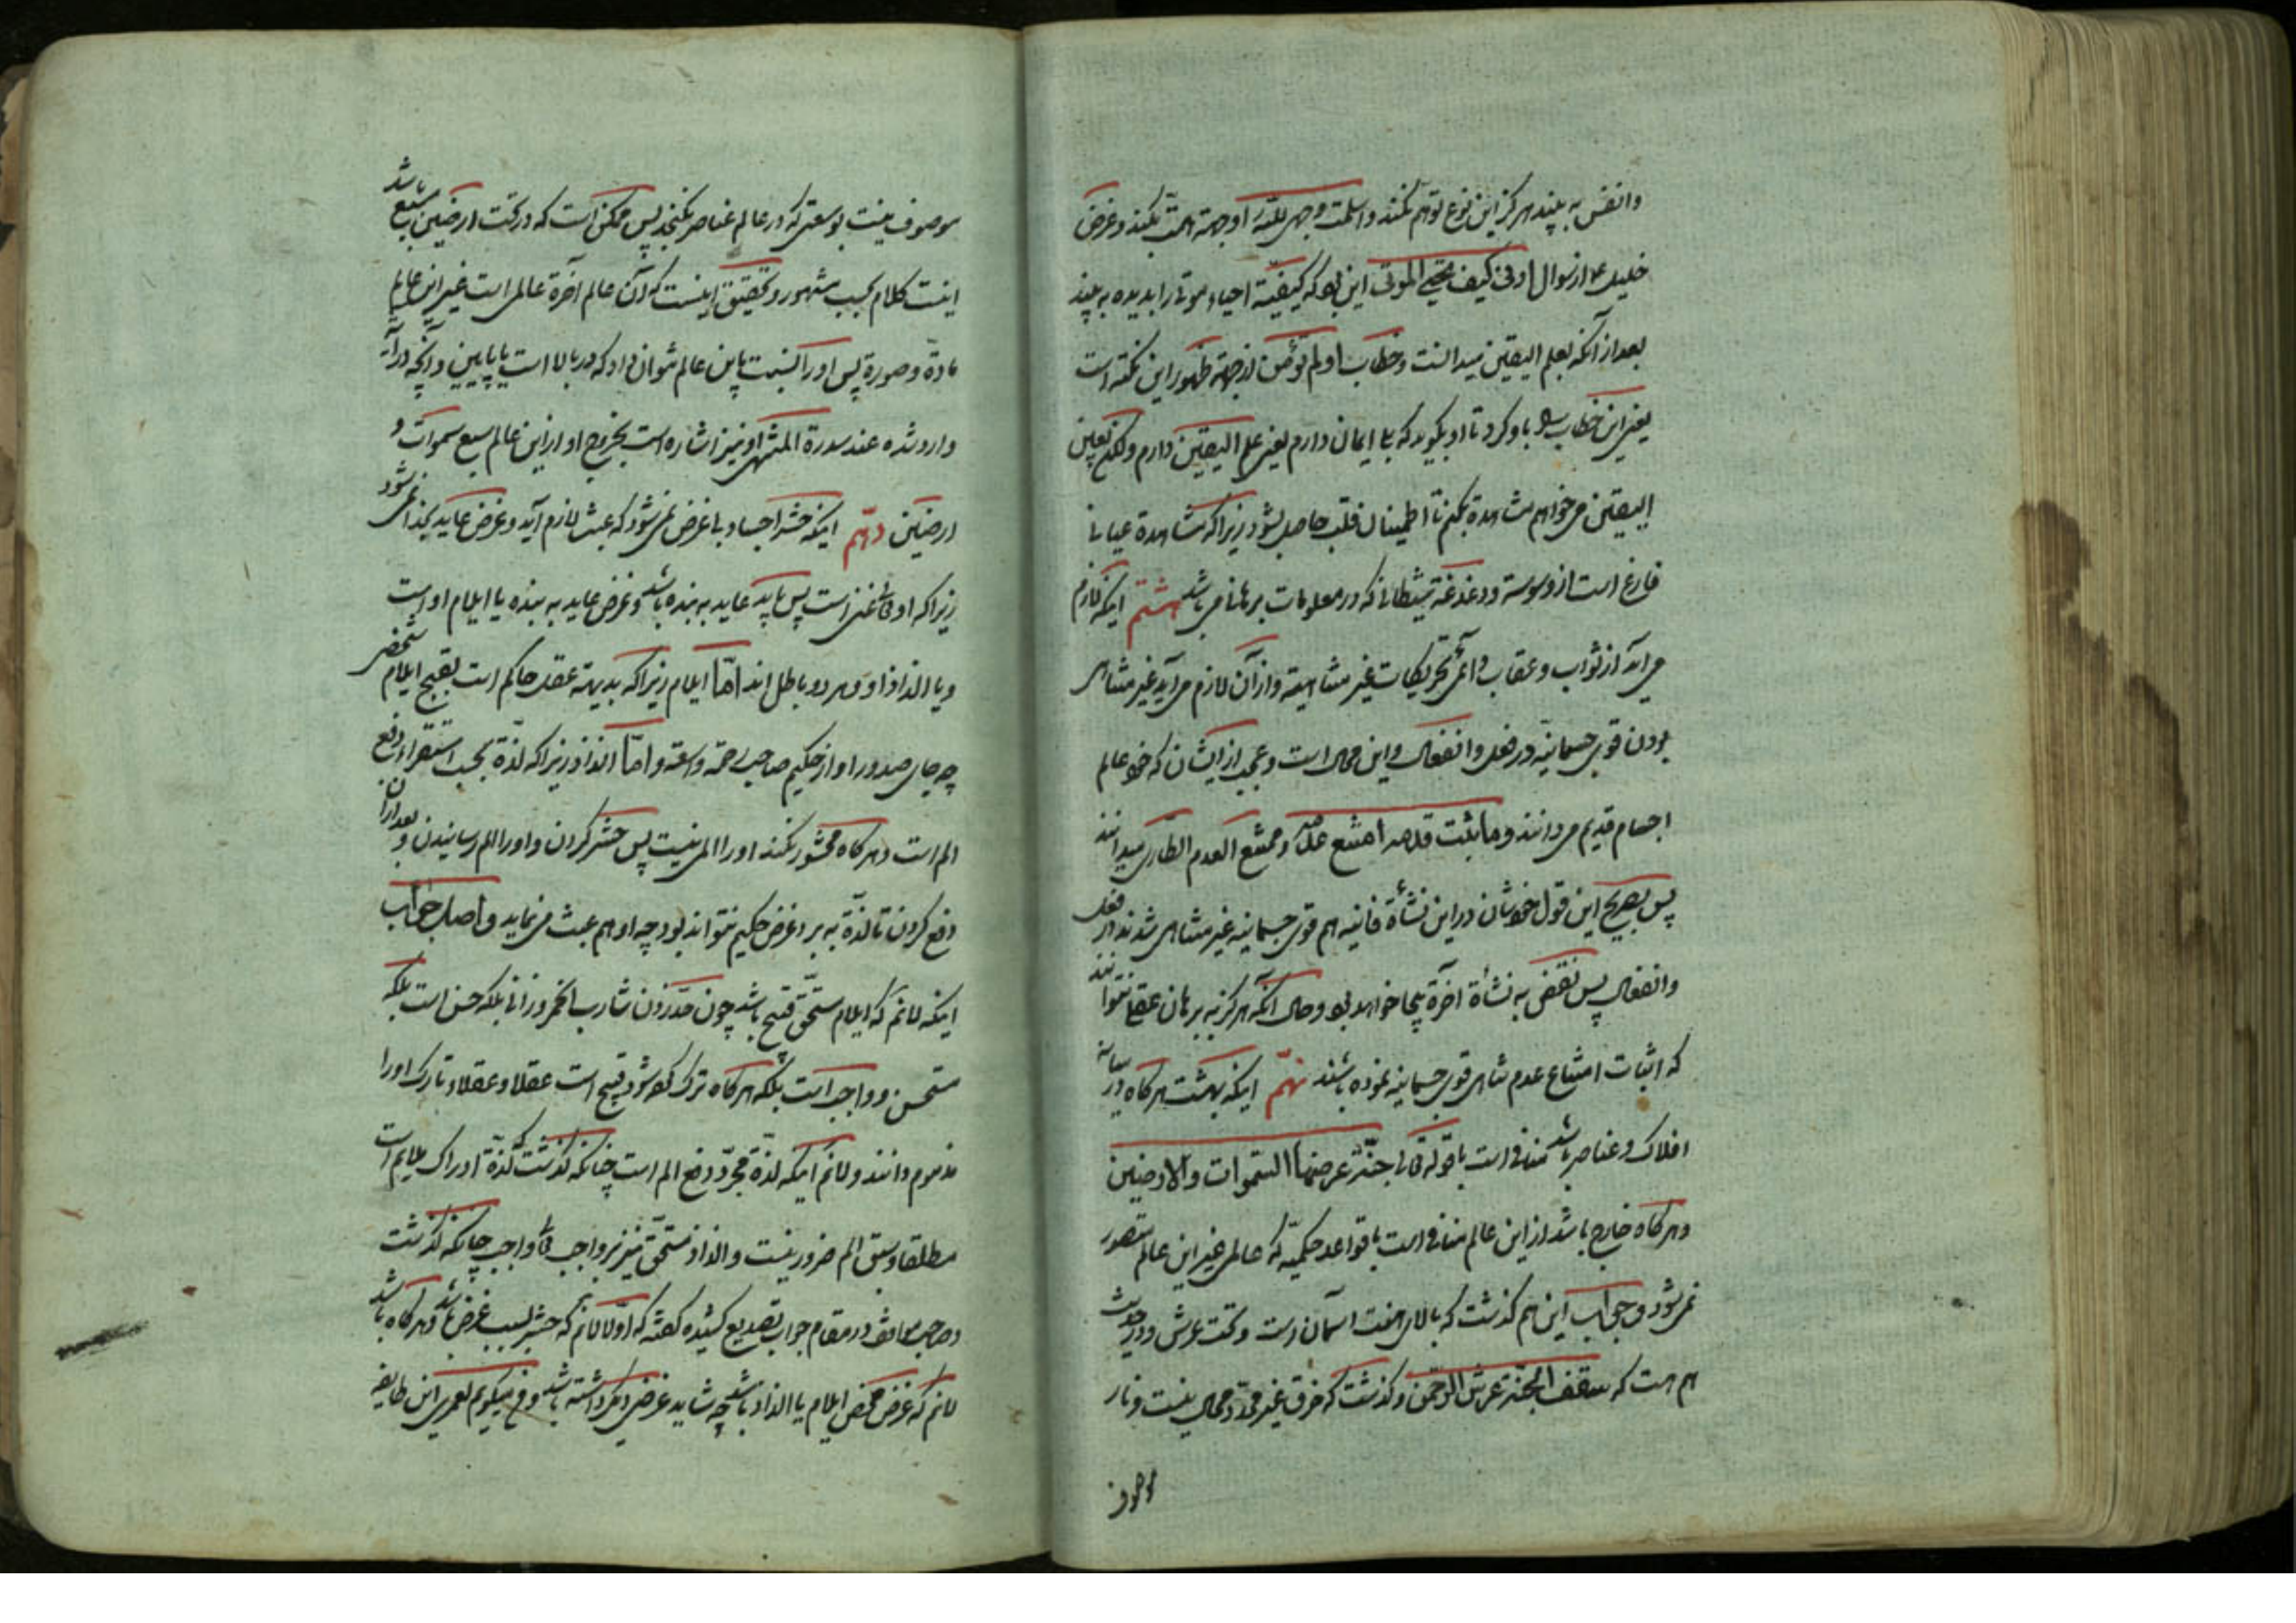 وانفس به بیند هرگز این نوع توهم نکند و اسلمت وجهی لله را وجهه همت بکند و غرض
خلیل ع از سؤال ارنی کیف تحیی الموتی این بود که کیفیة احیاء موتی را بدیده به بیند
بعد از آنکه بعلم الیقین میدانست و خطاب اولم تؤمن از جهة ظهور این نکته است
یعنی این خطاب باو کرد تا او بگوید که بلی ایمان دارم یعنی علم الیقین دارم ولکن بعین
الیقین میخواهم مشاهده بکنم تا اطمینان قلب حاصل بشود زیرا که مشاهدة عیانی
فارغ است از وسوسه و دغدغه شیطانی که در معلومات برهانی می باشد هشتم اینکه لازم
می آید از ثواب و عقاب دائمی تحریکات غیر متناهیة و از آن لازم می آید غیر متناهی
بودن قوی جسمانیه در فعل و انفعال و این محال است و عجب از ایشان که خود عالم
اجسام قدیم می دانند و ما ثبت قدمه امتنع عدمه و ممتنع العدم الطاری میدانند
پس بصریح این قول خودشان در این نشأة فانیه هم قوی جسمانیه غیر متناهی شدند در فعل
وانفعال پس نقض به نشاة آخرة بیجا خواهد بود و حال آنکه هرگز به برهان عقلی نتوانند
که اثبات امتناع عدم تناهی قوی جسمانیه نموده باشند نهم اینکه بهشت هرکاه در میانه
افلاک و عناصر باشد منافی است با قوله تعالی جنة عرضها السموات والارضین
و هرکاه خارج باشد از این عالم منافی است با قواعد حکمیه که عالمی غیر این عالم متصور
نمی شود و جواب این هم کذشت که بالای هفت آسمان است و تحت عرش و در حدیث
هم هست که سقف الجنة عرش الرحمن و کذشت که خرق غیر محدد محال نیست و نار
موصوف
موصوف نیست بوسعتی که در عالم عناصر نکنجد پس ممکن است که در تحت ارضین سبع باشد
اینست کلام بحسب مشهور و تحقیق اینست که آن عالم آخرة عالمی است غیر این عالم
مادة و صورة پس او را نسبت باین عالم نتوان داد که در بالا است یا پایین و آنچه در آیه
وارد شده عند سدرة المنتهی او نیز اشاره است بخروج او از این عالم سبع سموات و
ارضین دهم اینکه حشر اجساد بلا غرض نمی شود که عبث لازم آید و غرض عاید بخدا نمی شود
زیرا که او تعالی غنی است پس باید عاید به بنده باشد و غرض عاید به بنده یا ایلام او است
و یا الذاذ او و هر دو باطل اند اما ایلام زیرا که بدیهة عقل حاکم است بقبح ایلام شخصی
چه جای صدور او از حکیم صاحب رحمة واسعة و اما الذاذ زیرا که لذة بحسب استقراء دفع
الم است و هرکاه محشور نکند او را المی نیست پس حشر کردن و او را الم رسانیدن و بعد از آن
دفع کردن تا لذة به برد غرض حکیم نتواند بود چه او هم عبث می نماید و اصل جواب
اینکه لانم که ایلام مستحق قبیح باشد چون حد زدن شارب الخمر و زانی بلکه حسن است بلکه
مستحسن و واجب است بلکه هرکاه ترک کرده شود قبیح است عقلا و عقلاء تارک او را
مذموم دانند و لانم اینکه لذة مجرد دفع الم است چنانکه کذشت که لذة ادراک ملایم است
مطلقا و سبق الم ضرور نیست و الذاذ مستحق نیز بر واجب تعالی واجب چنانکه کذشت
و صاحب مواقف در مقام جواب تصدیع کشیده کفته که اولا لانم که حشر بسبب غرض باشد و هرکاه باشد
لانم که غرض محض ایلام یا الذاذ باشد چه شاید غرضی دیگر داشته باشد و میگویم لعمری این طایفه